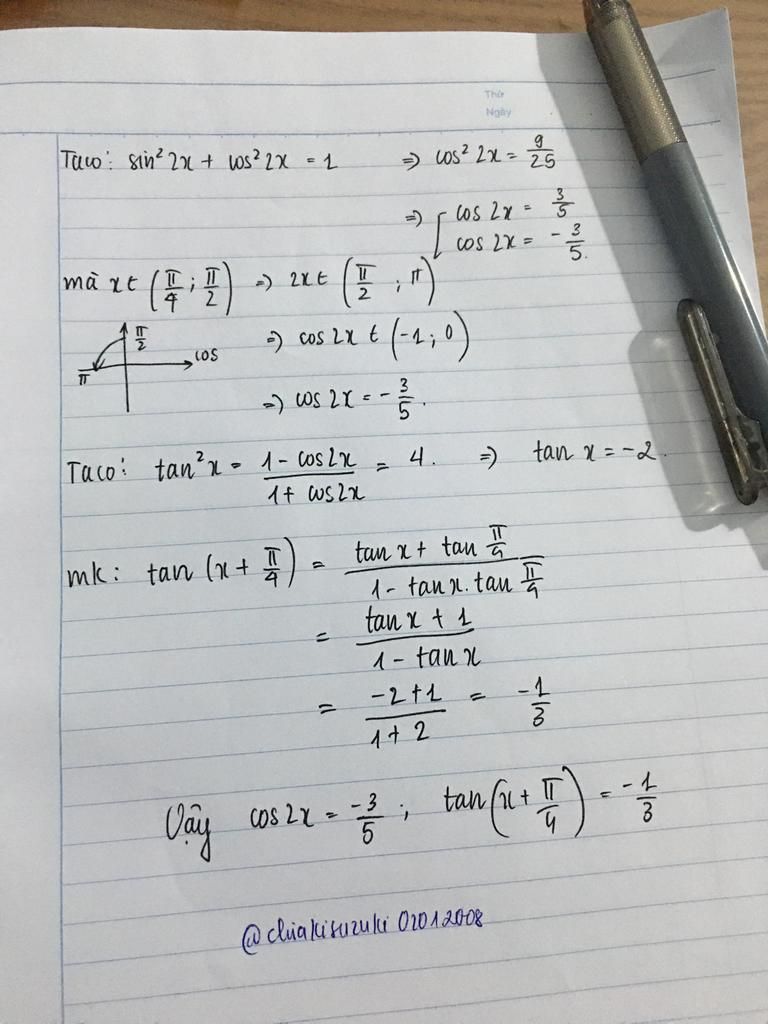 Thứ
Ngày
Taco: sin² 2x + cos² 2x = 1 => cos² 2x = 9/25
=> [ cos 2x = 3/5
cos 2x = - 3/5.
mà x ∈ (π/4 ; π/2) => 2x ∈ (π/2 ; π)
π/2
cos
π
=> cos 2x ∈ (-1 ; 0)
=> cos 2x = - 3/5.
Taco: tan² x = (1 - cos2x)/(1 + cos2x) = 4. => tan x = -2.
mk: tan (x + π/4) = (tan x + tan π/4)/(1 - tan x. tan π/4)
= (tan x + 1)/(1 - tan x)
= (-2 + 1)/(1 + 2) = -1/3
Vậy cos 2x = -3/5 ; tan(x + π/4) = -1/3
@chiakisuzuki02012008